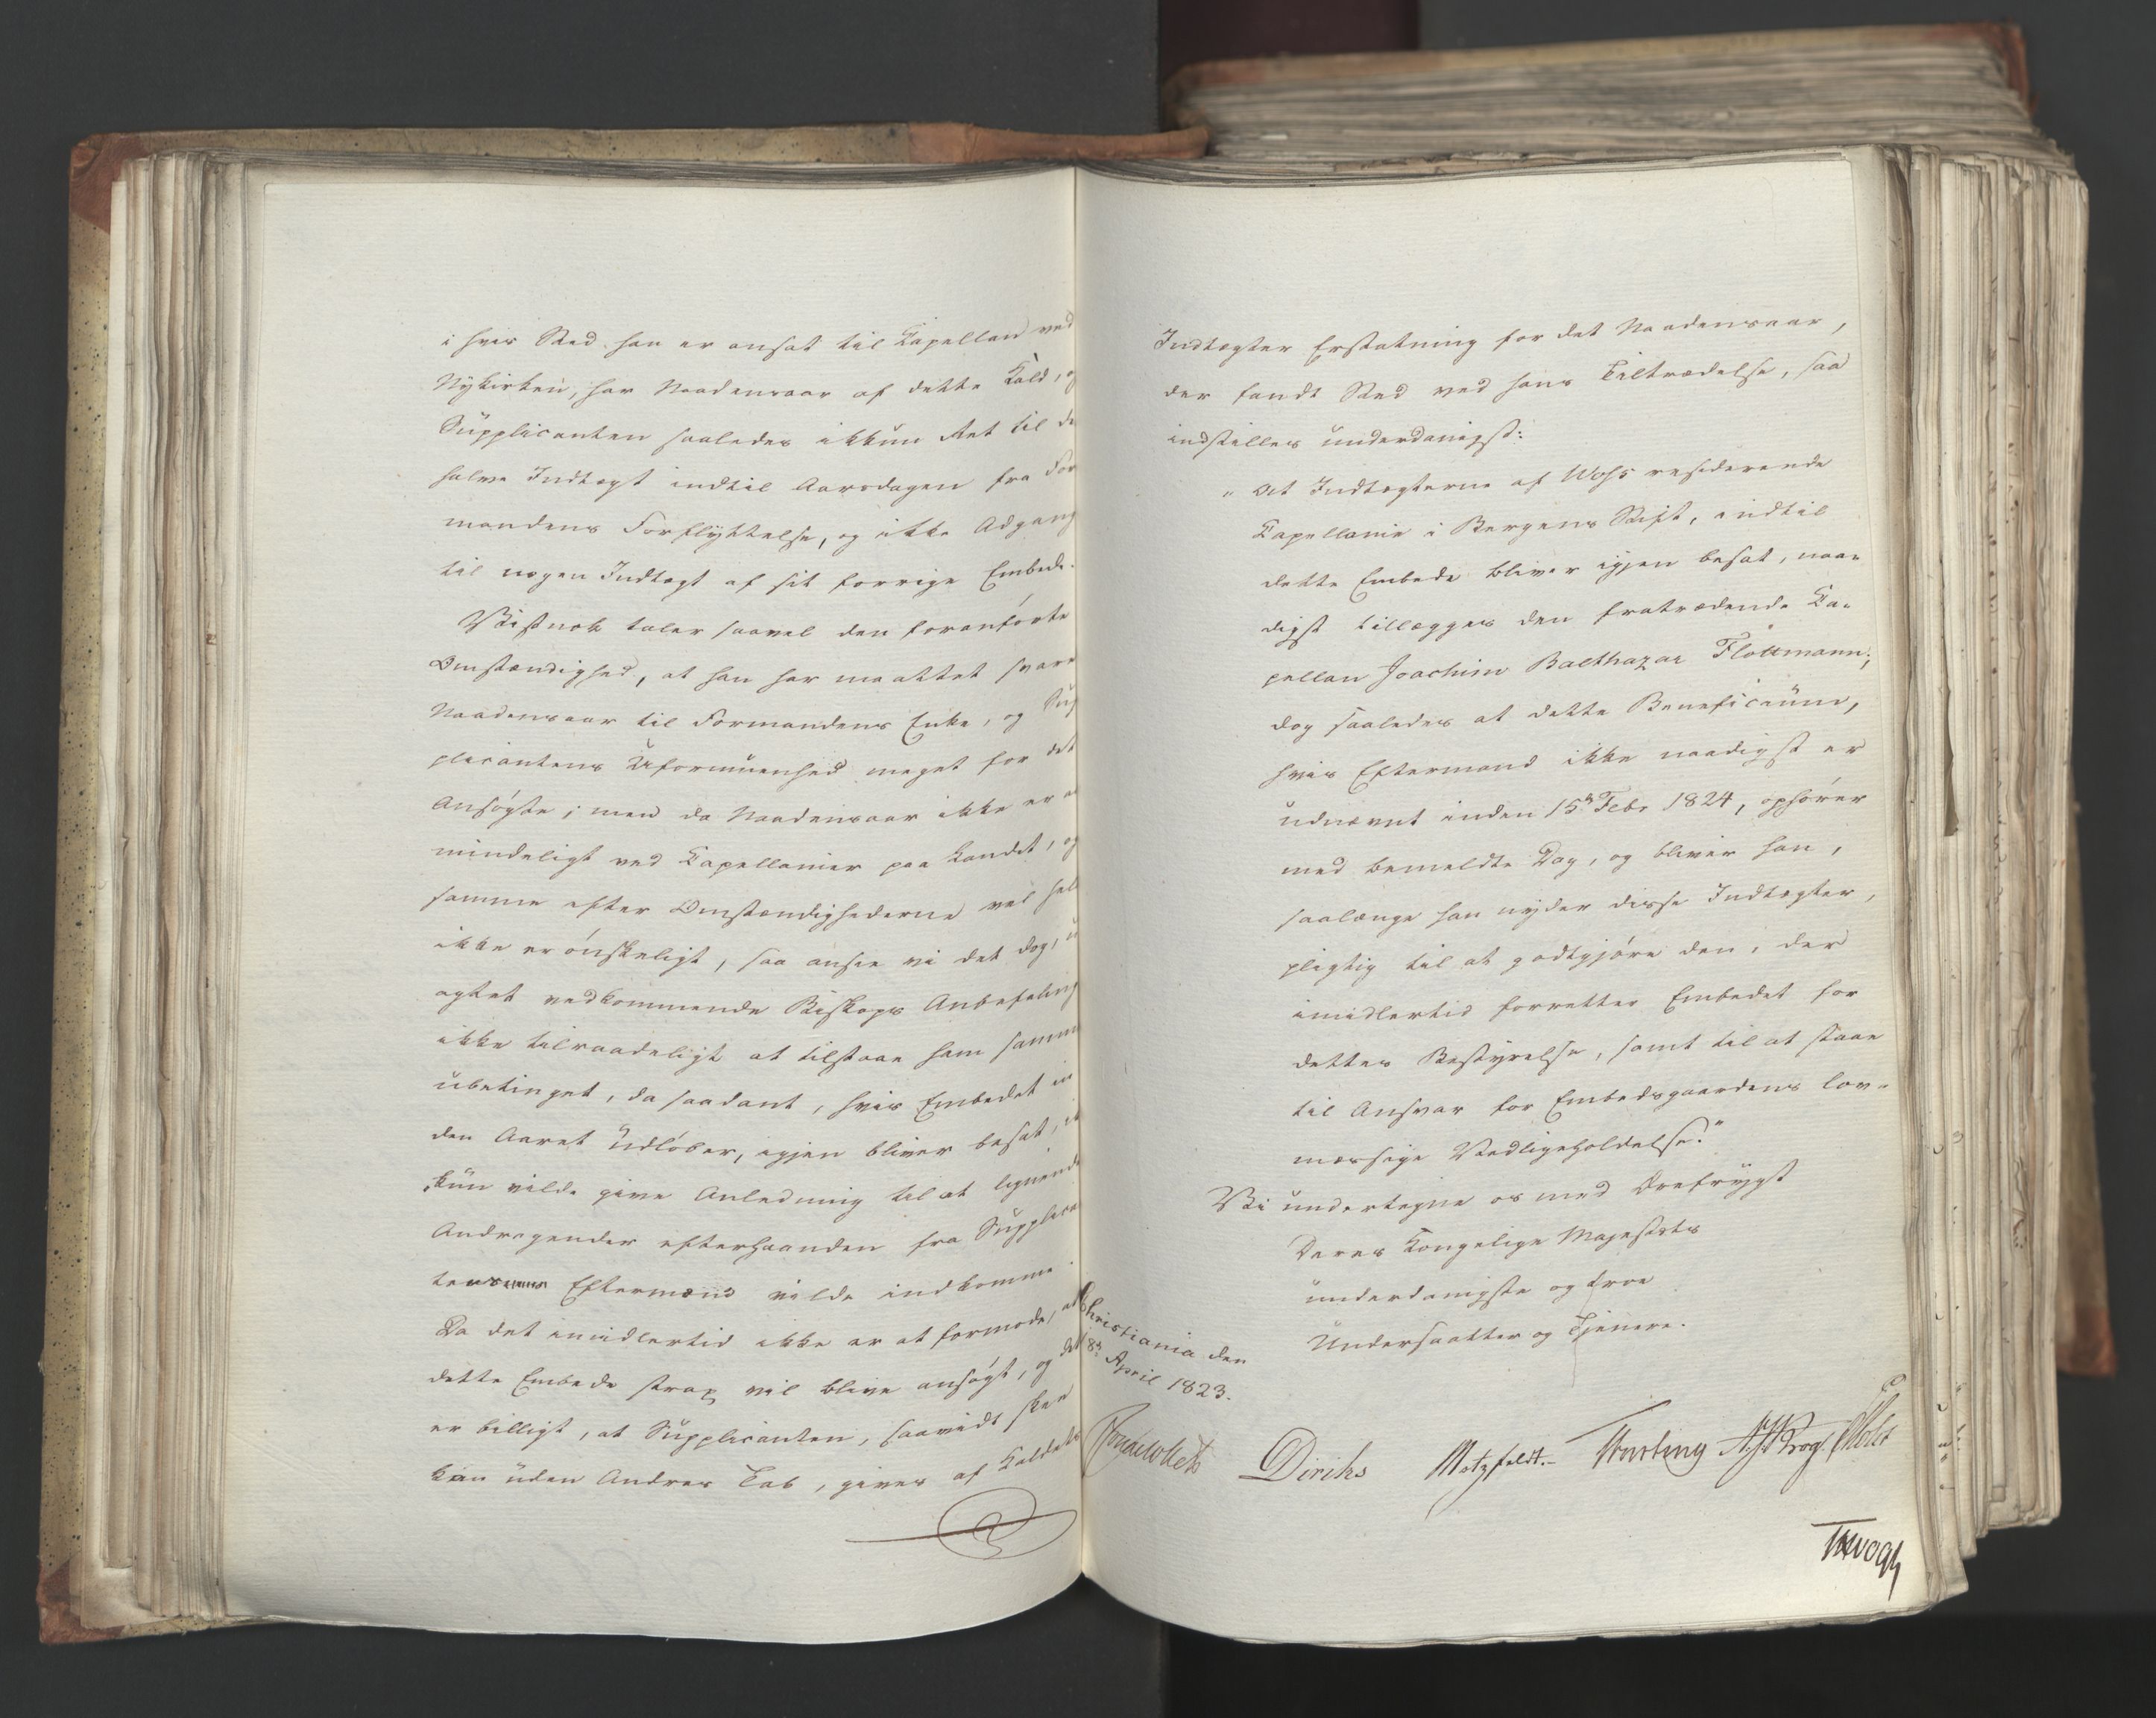 i hvis Sted han er ansat til Capellan ved
Nykirken, har Naadensaar af dette Kald, og
Supplicanten saaledes ikkun Ret til de
halve Indtægt indtil Aarsdagen fra For
mandens Forflyttelse, og ikke Adgang
til nogen Indtægt af sit forrige Embede.
Vistnok taler saavel den foranførte
Omstændighed, at han har maattet svare
Naadensaar til Formandens Enke, og Sup
plicantens Uformuenhed meget for det
Ansøgte; men da Naadensaar ikke er al
mindeligt ved Capellanier paa Landet, og
samme efter Omstændighederne vel hel
ikke er ønskeligt, saa ansee vi det dog, u
agtet vedkommende Biskops Anbefaling
ikke tilraadeligt at tilstaae ham samme
ubetinget, da saadant, hvis Embedet in
den Aaret udløber, igjen bliver besat,
kun vilde give Anledning til at lignende
Andragender efterhaanden fra Supplican
tens Eftermænd vilde indkomme.
Da det imidlertid ikke er at formode, at
dette Embede strax vil blive ansøgt, og det
er billigt, at Supplicanten, saavidt skee
kan uden Andres Tab, gives af Kaldets
Indtægter Erstatning for det Naadensaar,
der fandt Sted ved hans Tiltrædelse, saa
indstilles underdanigst:
"At Indtægterne af Woss residerende
Capellanie i Bergens Stift, indtil
dette Embede bliver igjen besat, naa-
digst tillægges den fratrædende Ca-
pellan Joachim Balthazar Flottmann,
dog saaledes at dette Beneficium,
hvis Eftermand ikke naadigst er
udnævnt inden 15de Febr 1824, ophører
med bemeldte Dag, og bliver han,
saalænge han nyder disse Indtægter,
pligtig til at godtgjøre den, der
imidlertid forretter Embedet for
dettes Bestyrelse, samt til at staae
til Ansvar for Embedsgaardens lov-
mæssige Vedligeholdelse."
Vi undertegne os med Ærefrygt
Deres Kongelige Majestæts
underdanigste og troe
Undersaatter og Tjenere.
Christiania den
8de April 1823.
Diriks Motzfeldt.